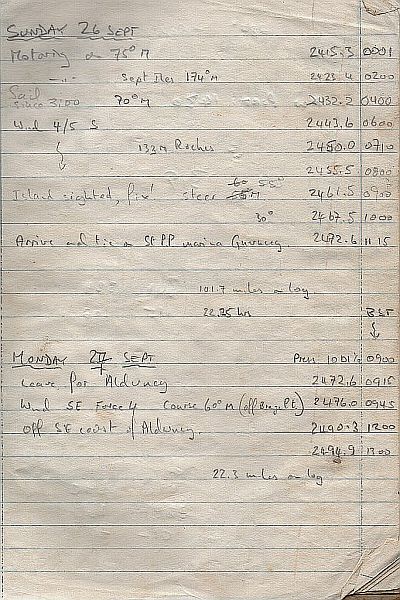 SUNDAY 26 SEPT
Motoring on 75°M 2415.3 0001
-"- Sept Iles 174°M 2423.4 0200
Sail since 3:00 70°M 2432.2 0400
Wind 4/5 S 2443.6 0600
133M Roches 2450.0 0710
2455.5 0800
Island sighted, fix! steer 55° 2461.5 0900
30° 2467.5 1000
Arrive and tie on St PP marina Guernsey 2472.6 11 15
101.7 miles on log
22.35 hrs BST
MONDAY 27 SEPT Press 1001½ 0900
Leave for Alderney 2472.6 0915
Wind SE Force 4 Course 60°M (off Braye Pt) 2476.0 0945
Off SE coast of Alderney. 2490.3 1200
2494.9 1300
22.3 miles on log